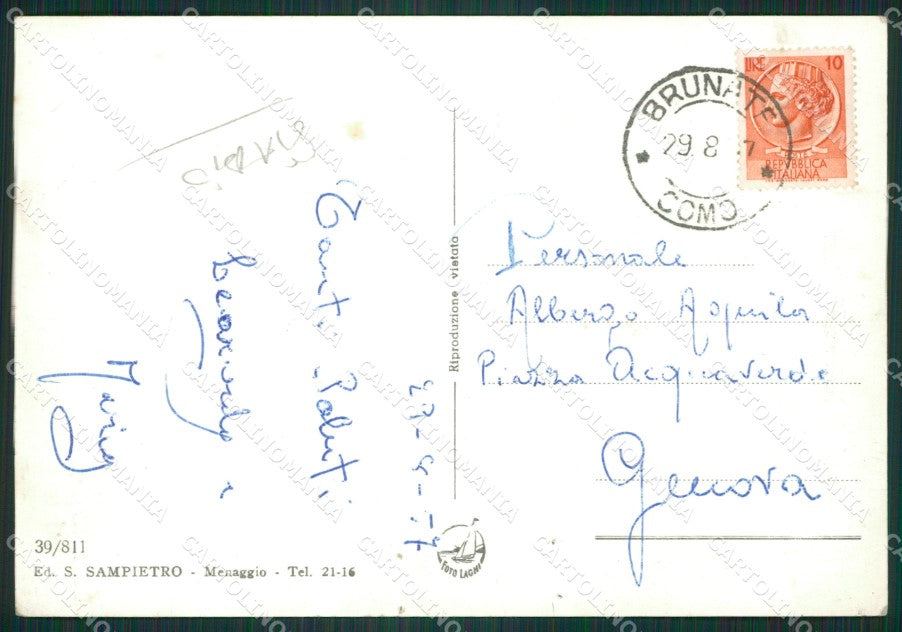 BRUNATE
29.8
COMO
LIRE 10
POSTE
REPVBBLICA
ITALIANA
Tanti Saluti
Leonardo e
29-8-
Riproduzione vietata
Personale
Albergo Aquila
Piazza Acquaverde
Genova
39/811
Ed. S. SAMPIETRO - Menaggio - Tel. 21-16
FOTO LAGHI
CARTOLINOMANIA